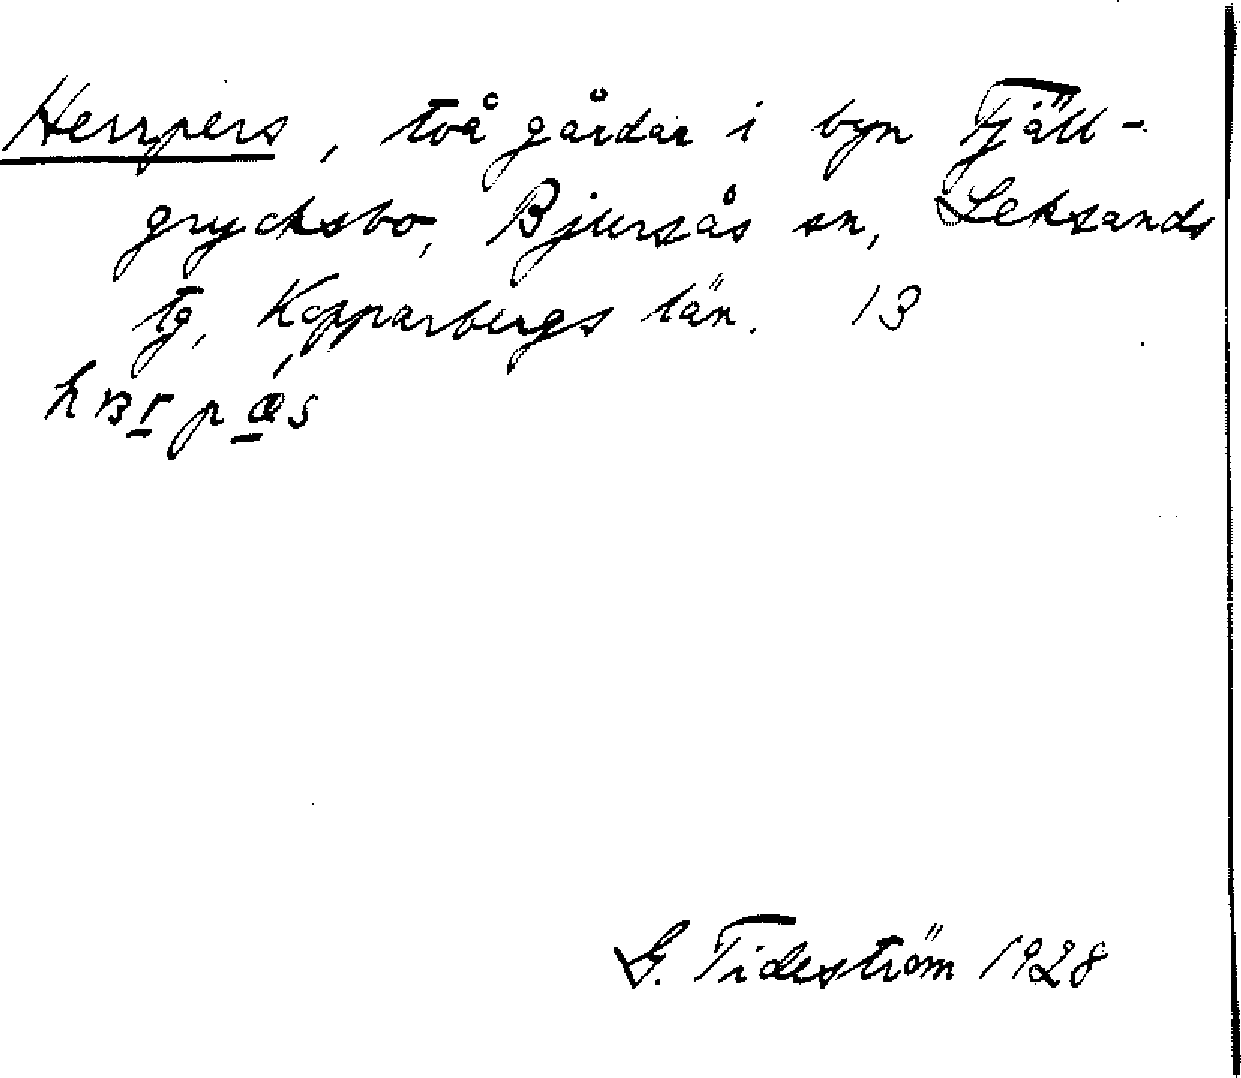 Herrpers, två gårdar i byn Fjäll-
grycksbo, Bjursås sn, Leksands
tg, Kopparbergs län. 13
G. Tideström 1928